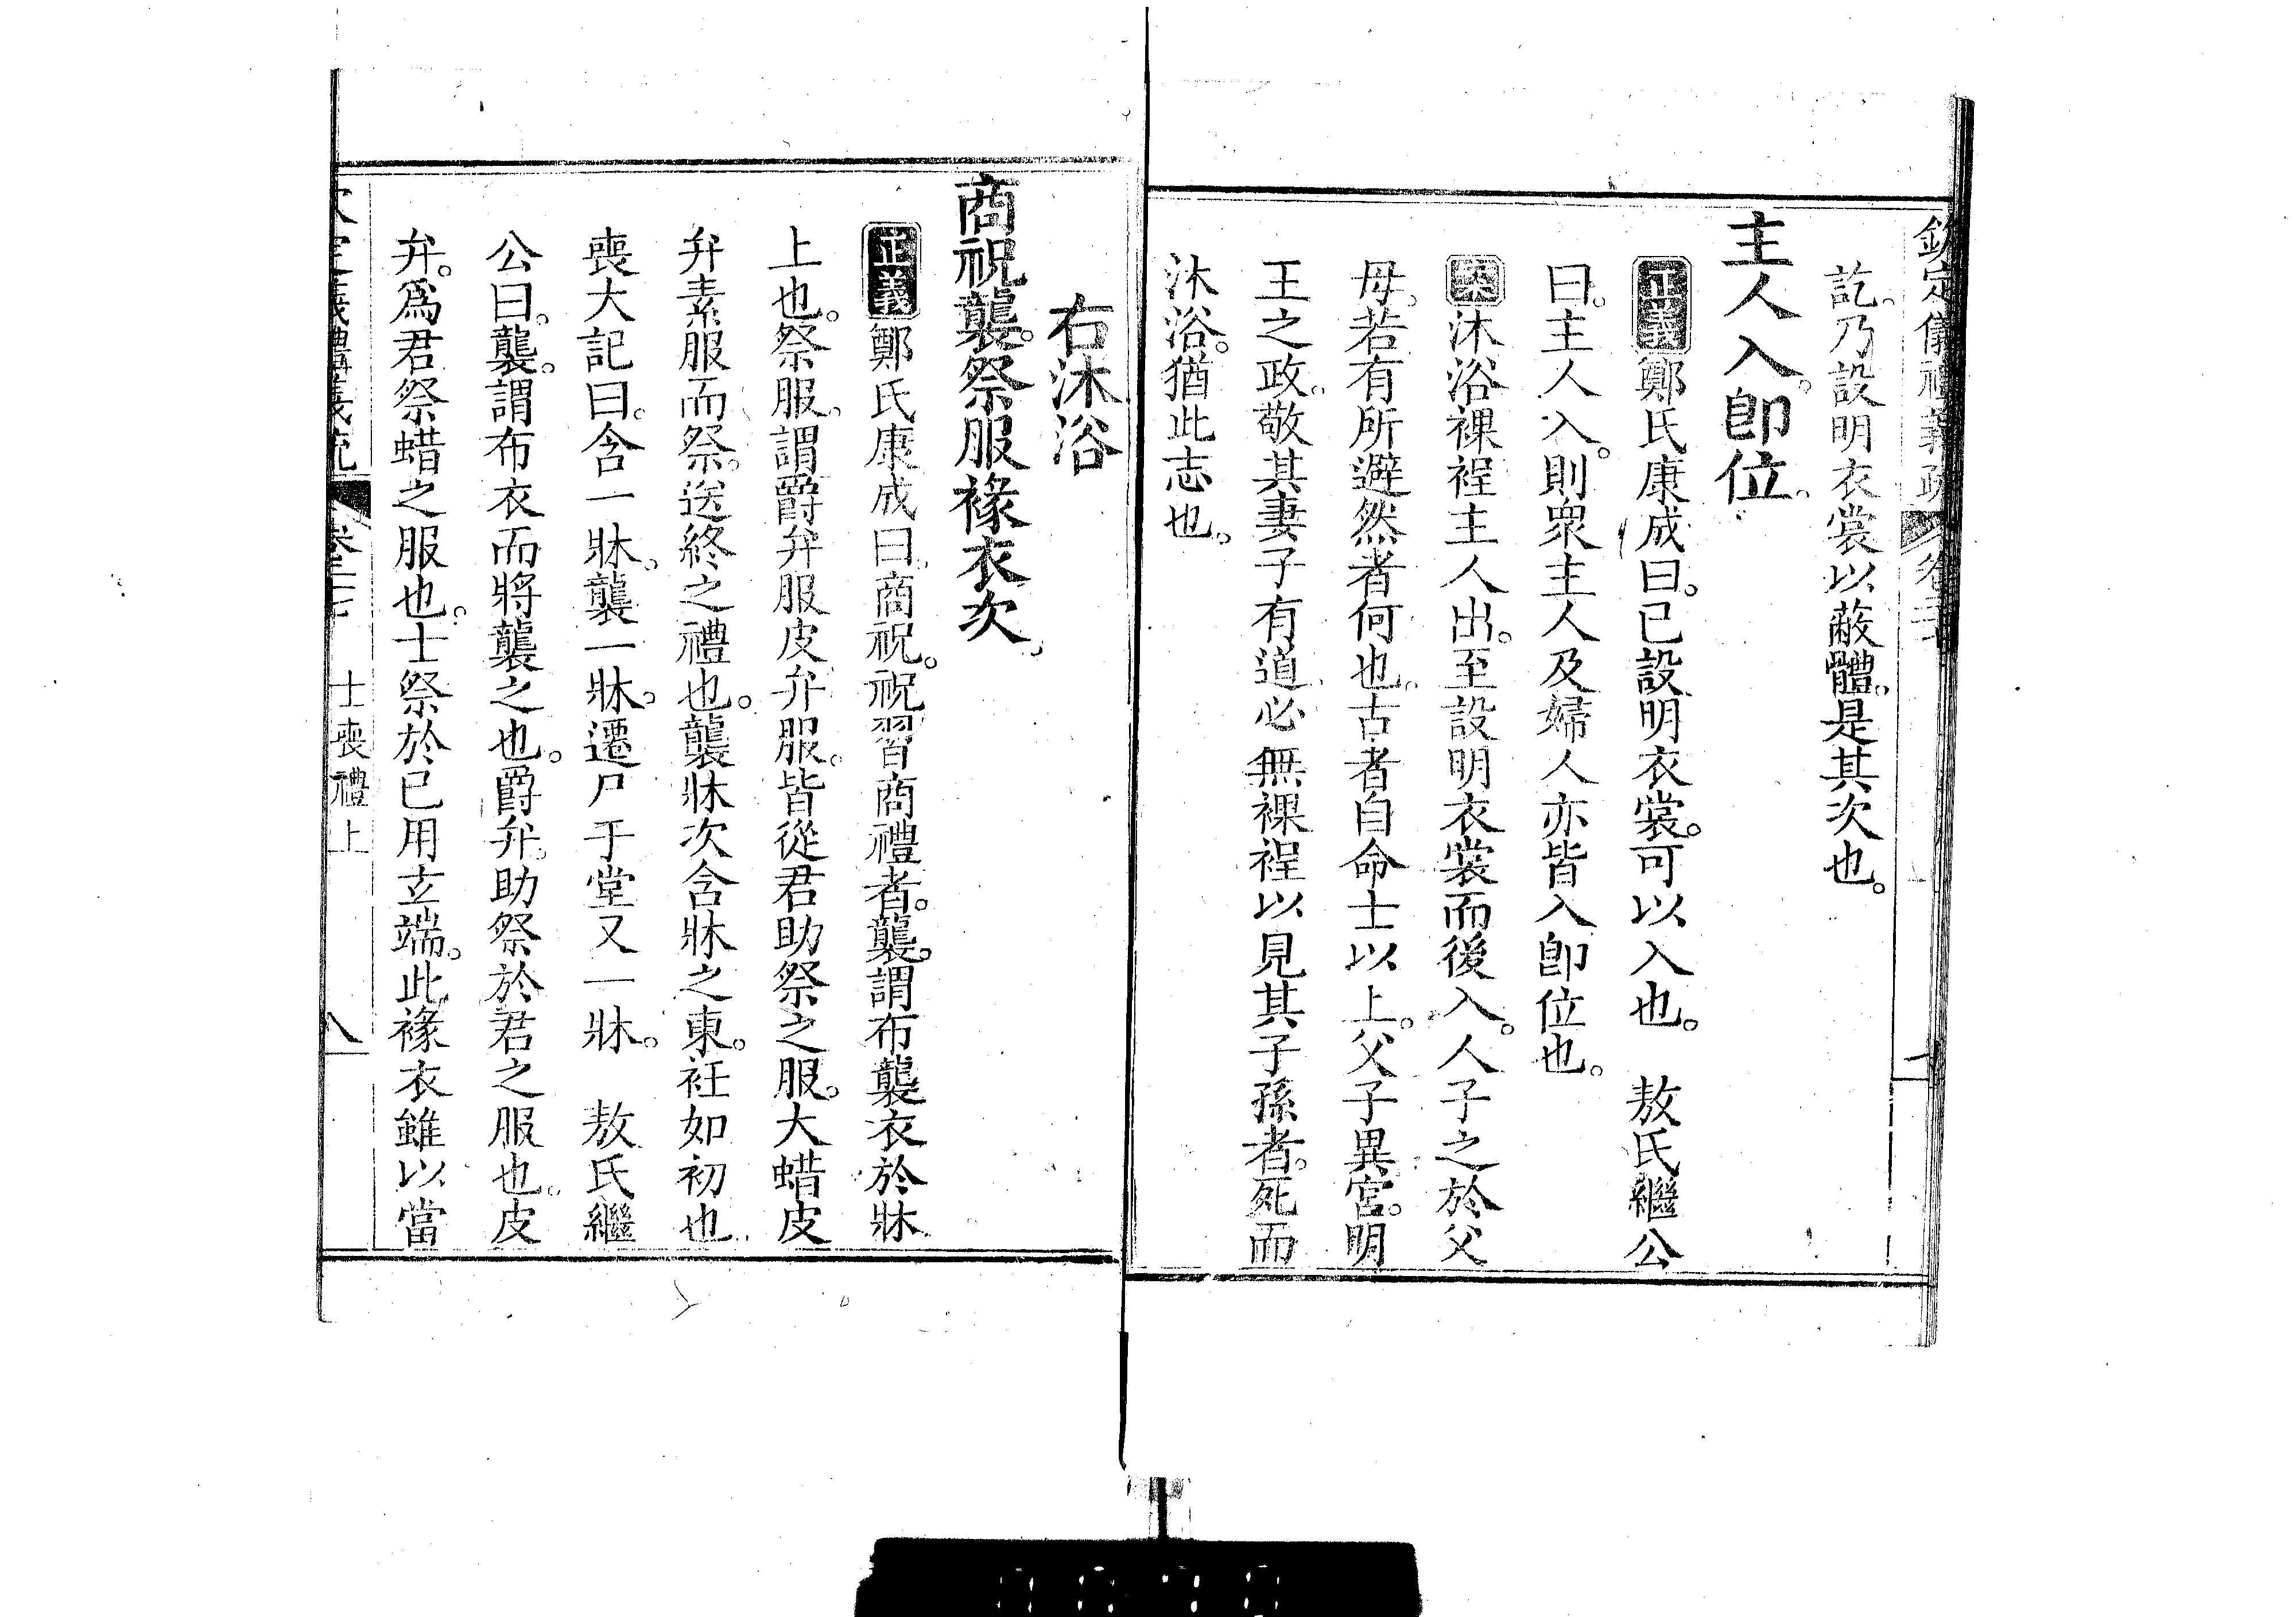 欽定儀禮義疏 卷二十七
訖。乃設明衣裳以蔽體。是其次也。
主人入。卽位。
正義鄭氏康成曰。已設明衣裳。可以入也。 敖氏繼公
曰。主人入。則眾主人及婦人亦皆入卽位也。
案沐浴裸裎主人出。至設明衣裳而後入。人子之於父
母。若有所避然者何也。古者自命士以上。父子異宮。明
王之政。敬其妻子有道必無裸裎以見其子孫者。死而
沐浴。猶此志也。
右沐浴
商祝襲。祭服褖衣次。
正義鄭氏康成曰。商祝。祝習商禮者。襲。謂布襲衣於牀
上也。祭服。謂爵弁服皮弁服。皆從君助祭之服。大蜡皮
弁素服而祭。送終之禮也。襲牀次含牀之東。衽如初也
喪大記曰。含一牀。襲一牀。遷尸于堂又一牀。 敖氏繼
公曰。襲。謂布衣而將襲之也。爵弁。助祭於君之服也。皮
弁。爲君祭蜡之服也。士祭於已用玄端。此褖衣雖以當
欽定儀禮義疏 卷二十七 士喪禮上 八